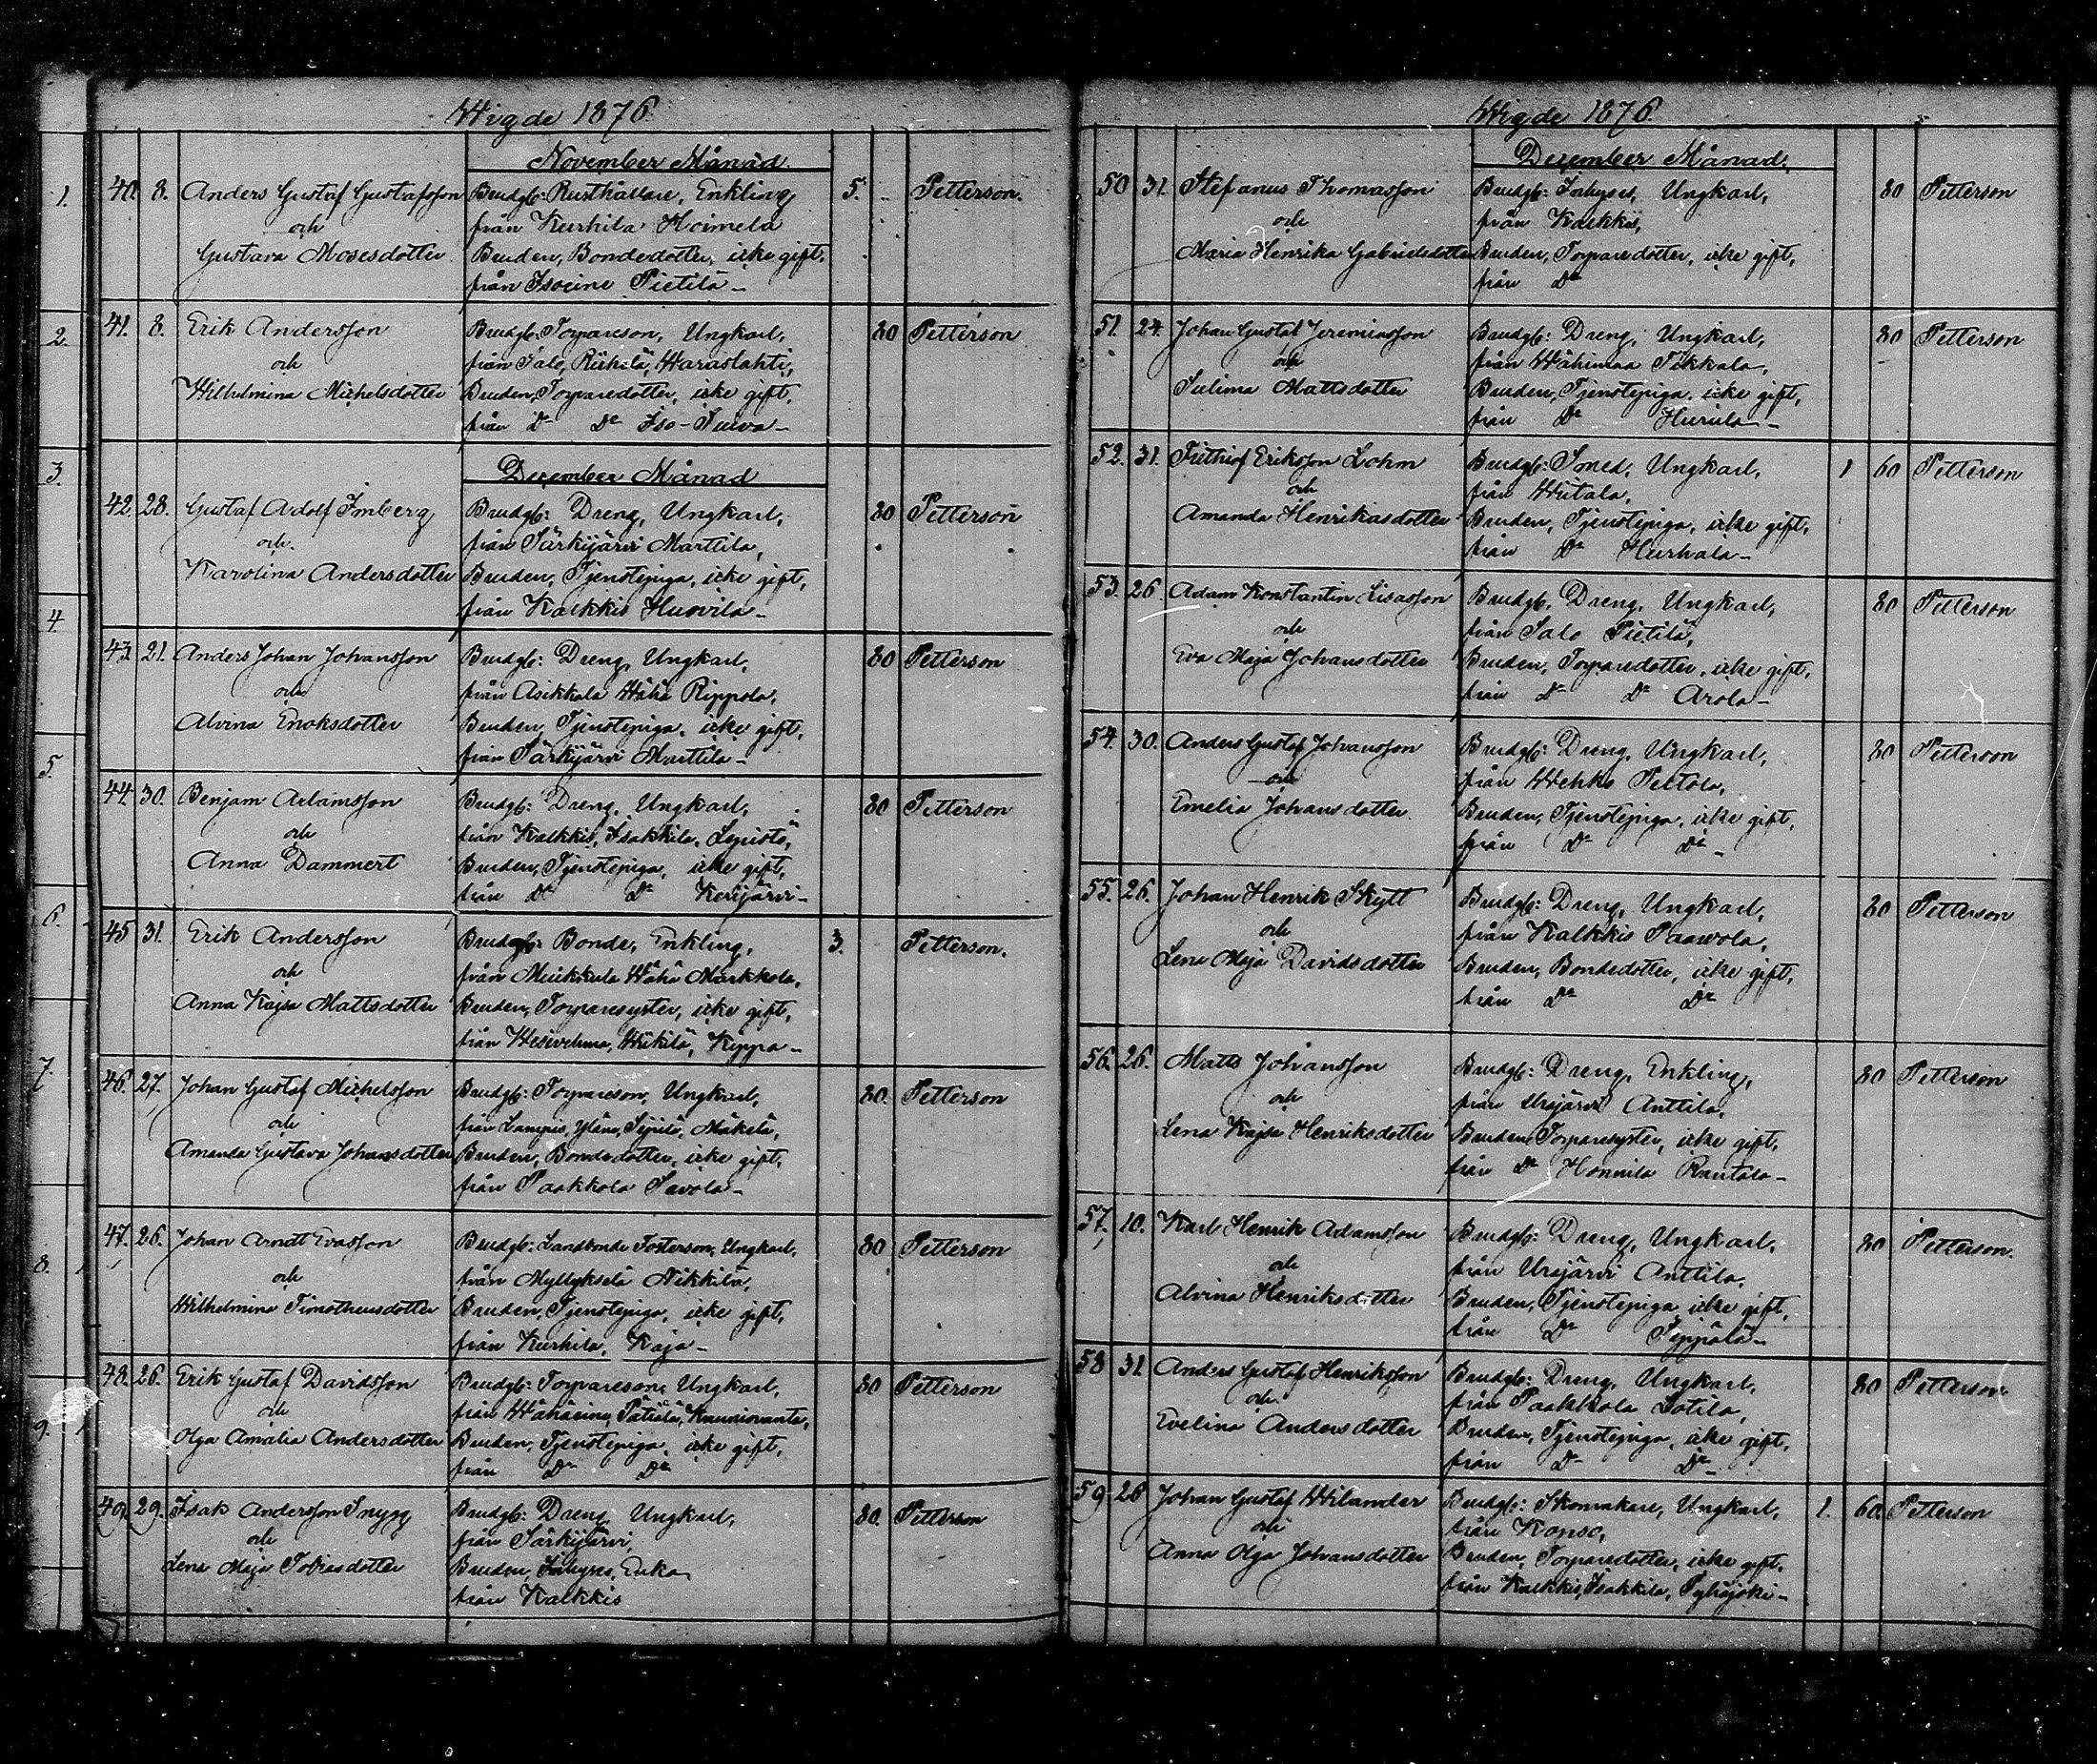 Wigde 1876
November Månad
1.
40. 8. Anders Gustaf Gustafsson Brudgb: Rusthållare, Enkling 5. Petterson.
och från Kurhila Hoimela
Gustava Mosesdotter Bruden, Bondedotter, icke gift,
från Isoeine Pietilä
2.
41. 8. Erik Andersson Brudgb. Torpareson, Ungkarl, 80 Petterson
och från Salo, Riihelä, Waraslahti,
Wilhelmina Michelsdotter Bruden, Torparedotter, icke gift,
från Do Do Iso-
3.
December Månad
42. 28. Gustaf Adolf Imberg Brudgb: Dreng, Ungkarl, 80 Petterson
och från Särkijärvi Marttila,
Karolina Andersdotter Bruden, Tjenstepiga, icke gift,
från Kalkkis Huovila
4.
43 21. Anders Johan Johansson Brudgb: Dreng, Ungkarl, 80 Petterson
och från Asikkala Wähä Rippola,
Alvina Enoksdotter Bruden, Tjenstepiga, icke gift,
från Särkijärvi Marttila
5.
44. 30. Benjam Adamsson Brudgb: Dreng, Ungkarl, 80 Petterson
och från Kalkkis, Isakkila, Lepistö,
Anna Dammert Bruden, Tjenstepiga, icke gift,
från Do Do Kerijärvi
6.
45 31. Erik Andersson Brudgb: Bonde, Enkling, 3. Petterson.
och från Muikkula Wähä Markkola,
Anna Kajsa Mattsdotter Bruden, Torparesyster, icke gift,
från Wesivehma, Wükilä, Keppa
7.
46. 27. Johan Gustaf Michelsson Brudgb: Torpareson, Ungkarl, 80. Petterson
och från Lampis, Mäkelä,
Amanda Gustava Johansdotter Bruden, Bondedotter, icke gift,
från Paakkola Savola
8.
47. 26. Johan Arndt Evasson Brudgb: Landbonde Fosterson, Ungkarl, 80 Petterson
och från Myllykselä Nikkilä,
Wilhelmina Timotheusdotter Bruden, Tjenstepiga, icke gift,
från Kurhila, Kaja
48. 26. Erik Gustaf Davidsson Brudgb: Torpareson, Ungkarl, 80 Petterson
9.
och från Wähäeine, Pätiälä,
Olga Amalia Andersdotter Bruden, Tjenstepiga, icke gift,
från Do Do
49. 29. Isak Andersson Snygg Brudgb: Dreng, Ungkarl, 80. Petterson
och från Särkijärvi,
Lena Maja Tobiasdotter Bruden, Inhyses, Enka,
från Kalkkis
Wigde 1876.
December Månad.
50 31. Stefanus Thomasson Brudgb: Inhyses, Ungkarl, 80 Petterson
och från Kalkkis,
Maria Henrika Gabrielsdotter Bruden, Torparedotter, icke gift,
från Do
51. 24. Johan Gustaf Jeremiasson Brudgb: Dreng, Ungkarl, 80 Petterson
och från Wähimaa Tikkala,
Sulima Mattsdotter Bruden, Tjenstepiga, icke gift,
från Do
52. 31. Frithiof Eriksson Lohm Brudgb: Smed, Ungkarl, 1 60 Petterson
och från Wiitala,
Amanda Henrikasdotter Bruden, Tjenstepiga, icke gift,
från Do Hurhala
53. 26 Adam Konstantin Lisasson Brudgb. Dreng, Ungkarl, 80 Petterson
och från Salo Pietilä,
Eva Maja Johansdotter Bruden, Torparedotter, icke gift,
från Do Do Arola
54. 30. Anders Gustaf Johansson Brudgb: Dreng, Ungkarl, 80 Petterson
och från Wehko Peltola,
Emelia Johansdotter Bruden, Tjenstepiga, icke gift,
från Do Do
55. 26. Johan Henrik Skytt Brudgb: Dreng, Ungkarl, 80 Petterson
och från Kalkkis Paavola,
Lena Maja Davidsdotter Bruden, Bondedotter, icke gift,
från Do Do
56. 26. Matts Johansson Brudgb: Dreng, Enkling, 80 Petterson
och från Urajärvi Anttila,
Lena Kajsa Henriksdotter Bruden, Torparesyster, icke gift,
från Do Honnila Rautala
57. 10. Karl Henrik Adamsson Brudgb: Dreng, Ungkarl, 80 Petterson.
och från Urajärvi Anttila,
Alvina Henriksdotter Bruden, Tjenstepiga icke gift,
från Do Seppälä
58 31. Anders Gustaf Henriksson Brudgb: Dreng, Ungkarl, 80 Petterson
och från Paakkola Lotila,
Evelina Andersdotter Bruden, Tjenstepiga, icke gift,
från Do Do
59 26 Johan Gustaf Wilander Brudgb: Skomakare, Ungkarl, 1. 60 Petterson
och från Konso,
Anna Olga Johansdotter Bruden, Torparedotter, icke gift,
från Kalkkis, Isakkila, Pyhäjoki